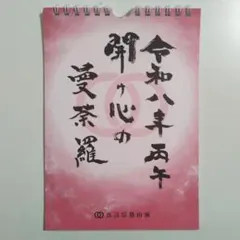 令和八年丙午
開け心の
曼荼羅